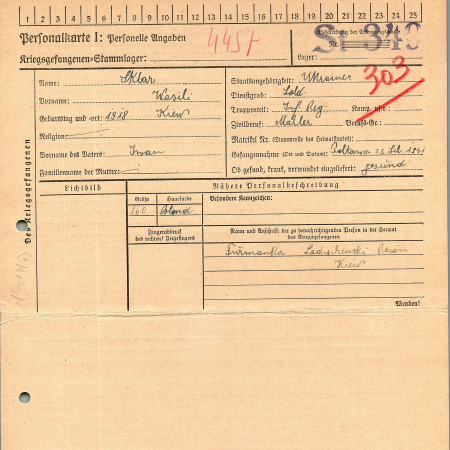 1 2 3 4 5 6 7 8 9 10 11 12 13 14 15 16 17 18 19 20 21 22 23 24 25
Personalkarte I: Personelle Angaben
4457
Beschriftung der Erkennungsmarke
Nr.
St 349
Kriegsgefangenen-Stammlager:
Lager:
303
Des Kriegsgefangenen
Name: Sklar
Vorname: Wasili
Geburtstag und -ort: 1918 Kiew
Religion:
Vorname des Vaters: Iwan
Familienname der Mutter:
Staatsangehörigkeit: Ukrainer
Dienstgrad: Sold
Truppenteil: Inf. Reg Komp. usw.:
Zivilberuf: Mahler Berufs-Gr.:
Matrikel Nr. (Stammrolle des Heimatstaates):
Gefangennahme (Ort und Datum): 1941
Ob gesund, krank, verwundet eingeliefert: gesund
Lichtbild
Nähere Personalbeschreibung
Größe
Haarfarbe
160
Blond
Besondere Kennzeichen:
Fingerabdruck
des rechten! Zeigefingers
Name und Anschrift der zu benachrichtigenden Person in der Heimat
des Kriegsgefangenen
Furmanka
Kiew
Wenden!